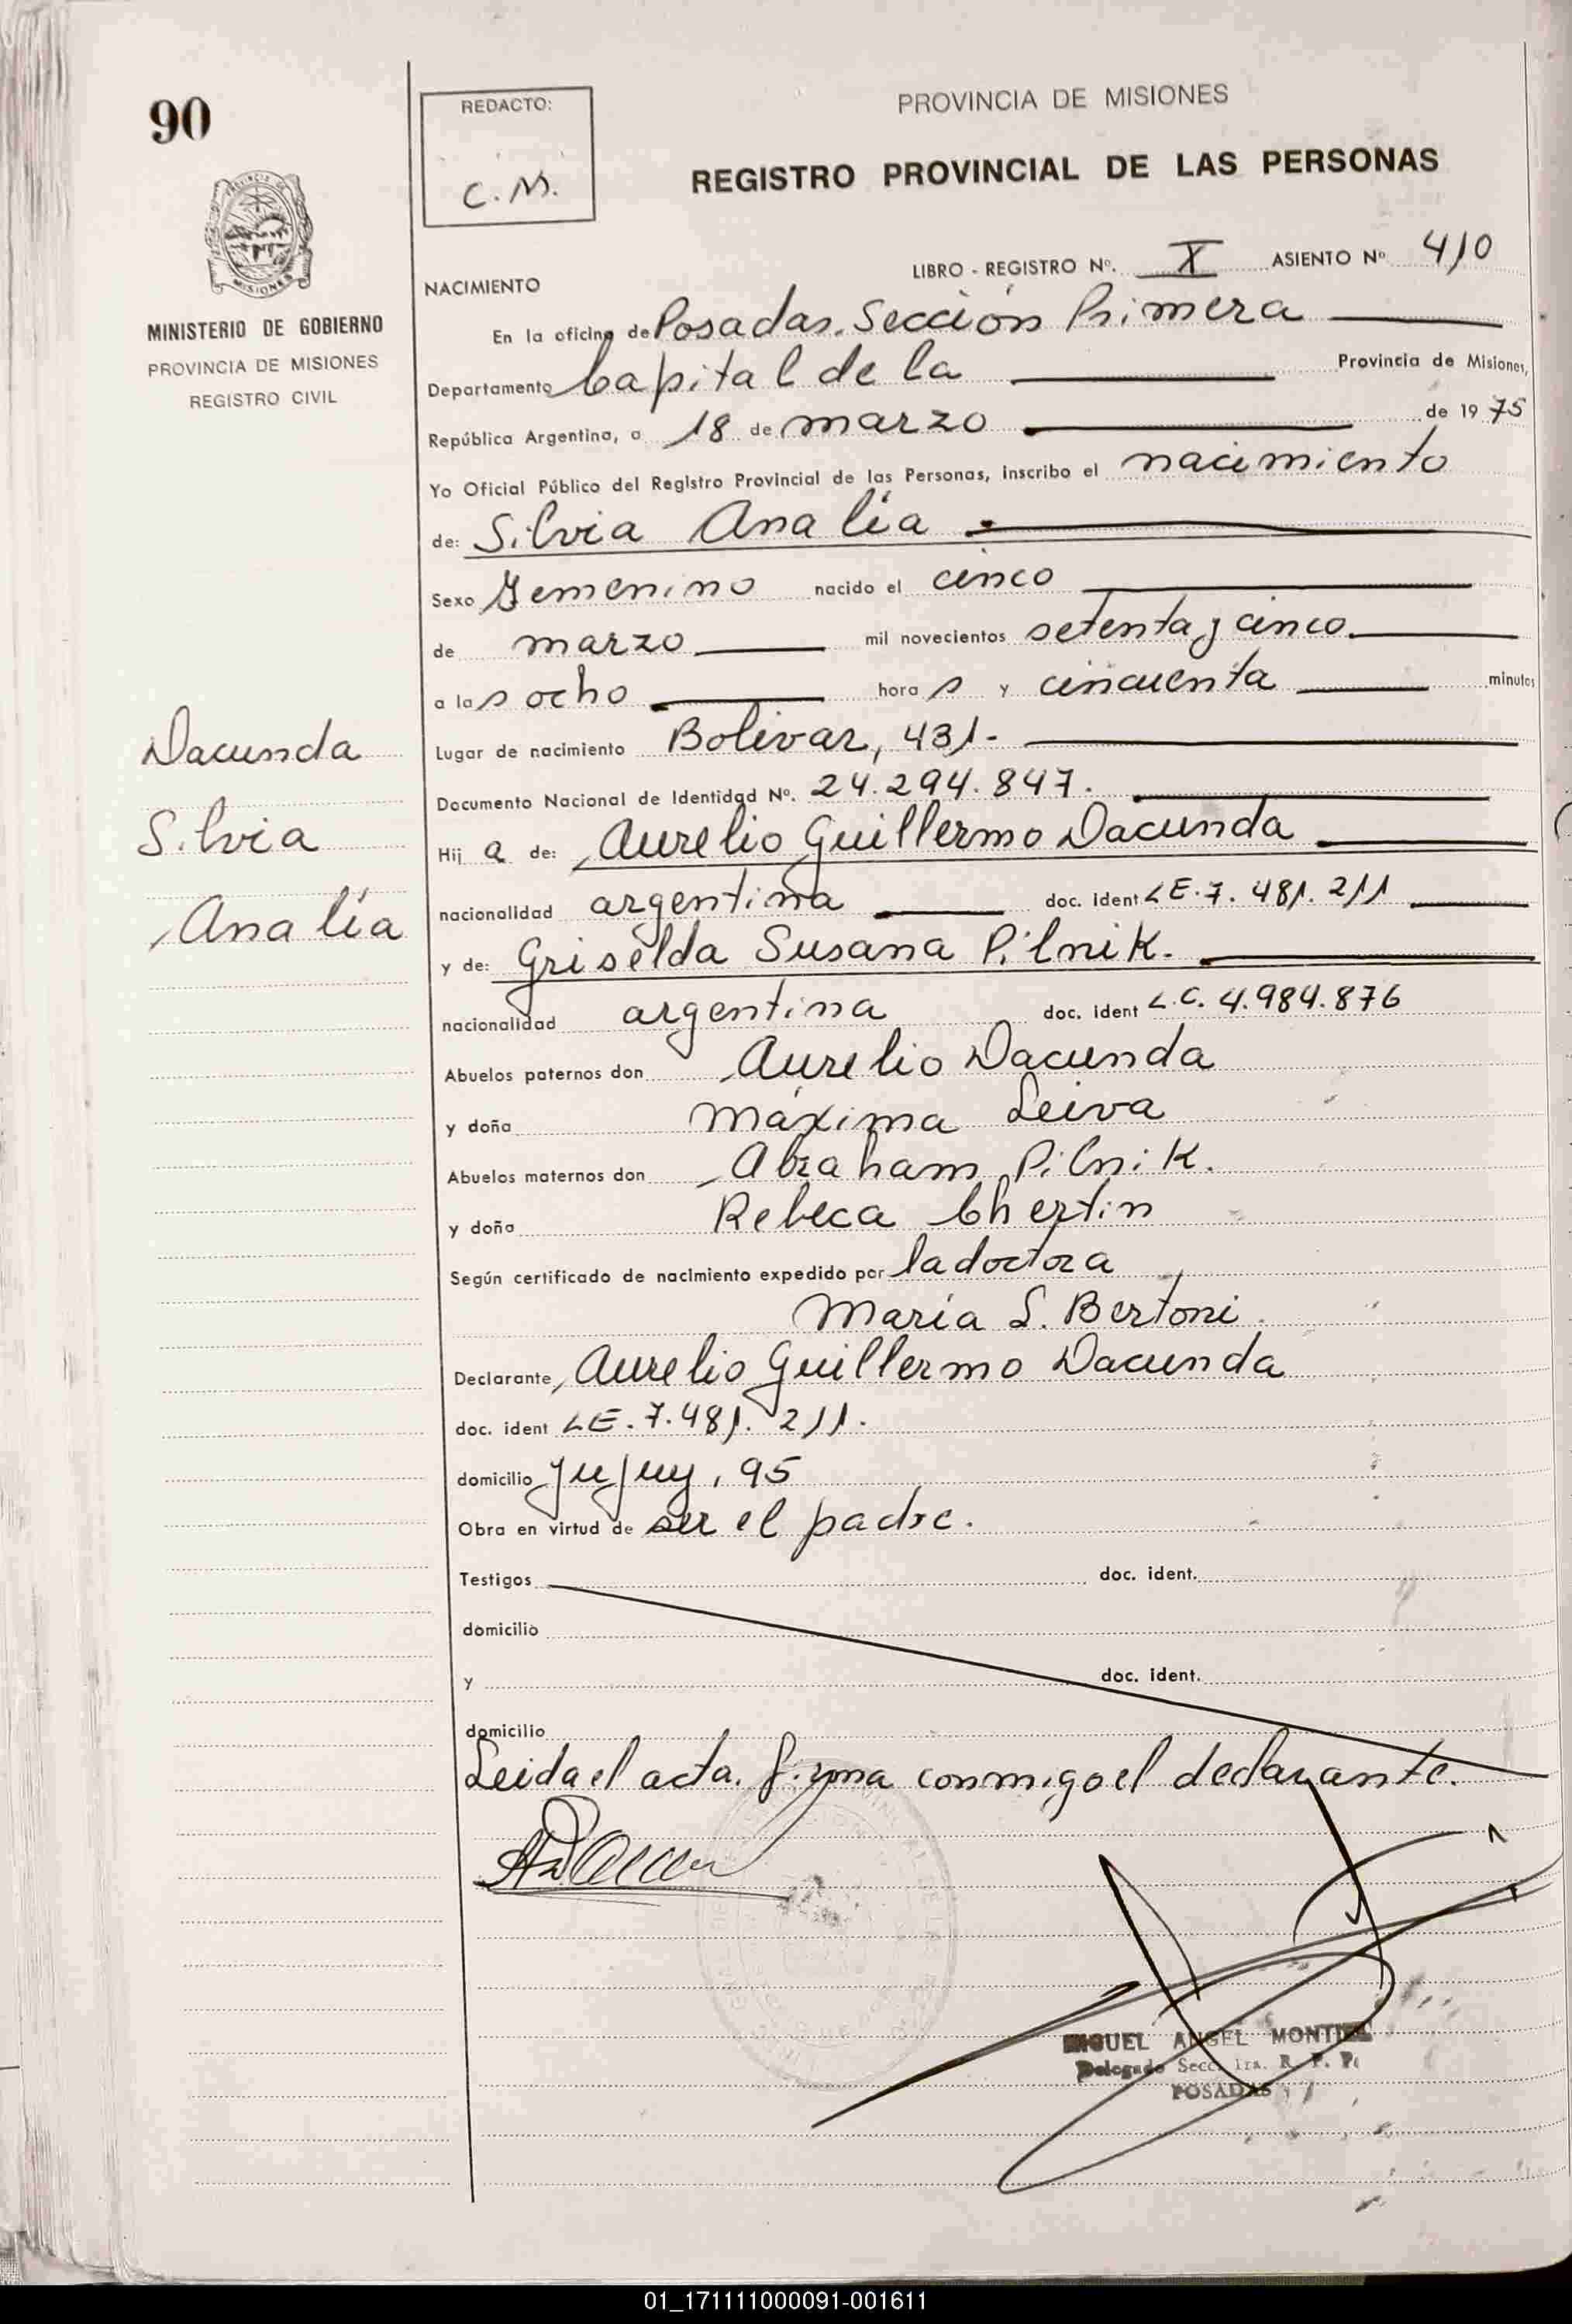 90
REDACTO:
C. M.
PROVINCIA DE MISIONES
REGISTRO PROVINCIAL DE LAS PERSONAS
MINISTERIO DE GOBIERNO
PROVINCIA DE MISIONES
REGISTRO CIVIL
LIBRO - REGISTRO Nº. X ASIENTO Nº 410
NACIMIENTO
En la oficina de Posadas. Sección Primera
Departamento Capital de la Provincia de Misiones,
República Argentina, a 18 de marzo de 1975
Yo Oficial Público del Registro Provincial de las Personas, inscribo el nacimiento
de: Silvia Analía
Sexo Femenino nacido el cinco
de marzo mil novecientos setenta y cinco.
a las ocho horas y cincuenta minutos
Dacunda
Silvia
Analía
Lugar de nacimiento Bolivar, 431.-
Documento Nacional de Identidad Nº. 24.294.847.
Hija de: Aurelio Guillermo Dacunda
nacionalidad argentina doc. ident LE. 7. 481. 211
y de: Griselda Susana Pilnik.
nacionalidad argentina doc. ident L.C. 4.984.876
Abuelos paternos don Aurelio Dacunda
y doña Máxima Leiva
Abuelos maternos don Abraham Pilnik.
y doña Rebeca Chertin
Según certificado de nacimiento expedido por la doctora
María L. Bertoni.
Declarante Aurelio Guillermo Dacunda
doc. ident LE. 7.481. 211.
domicilio Jujuy, 95
Obra en virtud de ser el padre.
Testigos doc. ident.
domicilio
y doc. ident.
domicilio
Leida el acta. firma conmigo el declarante.
MIGUEL ANGEL MONTIEL
Delegado Secc. 1ra. R. P. P.
POSADAS
01_171111000091-001611